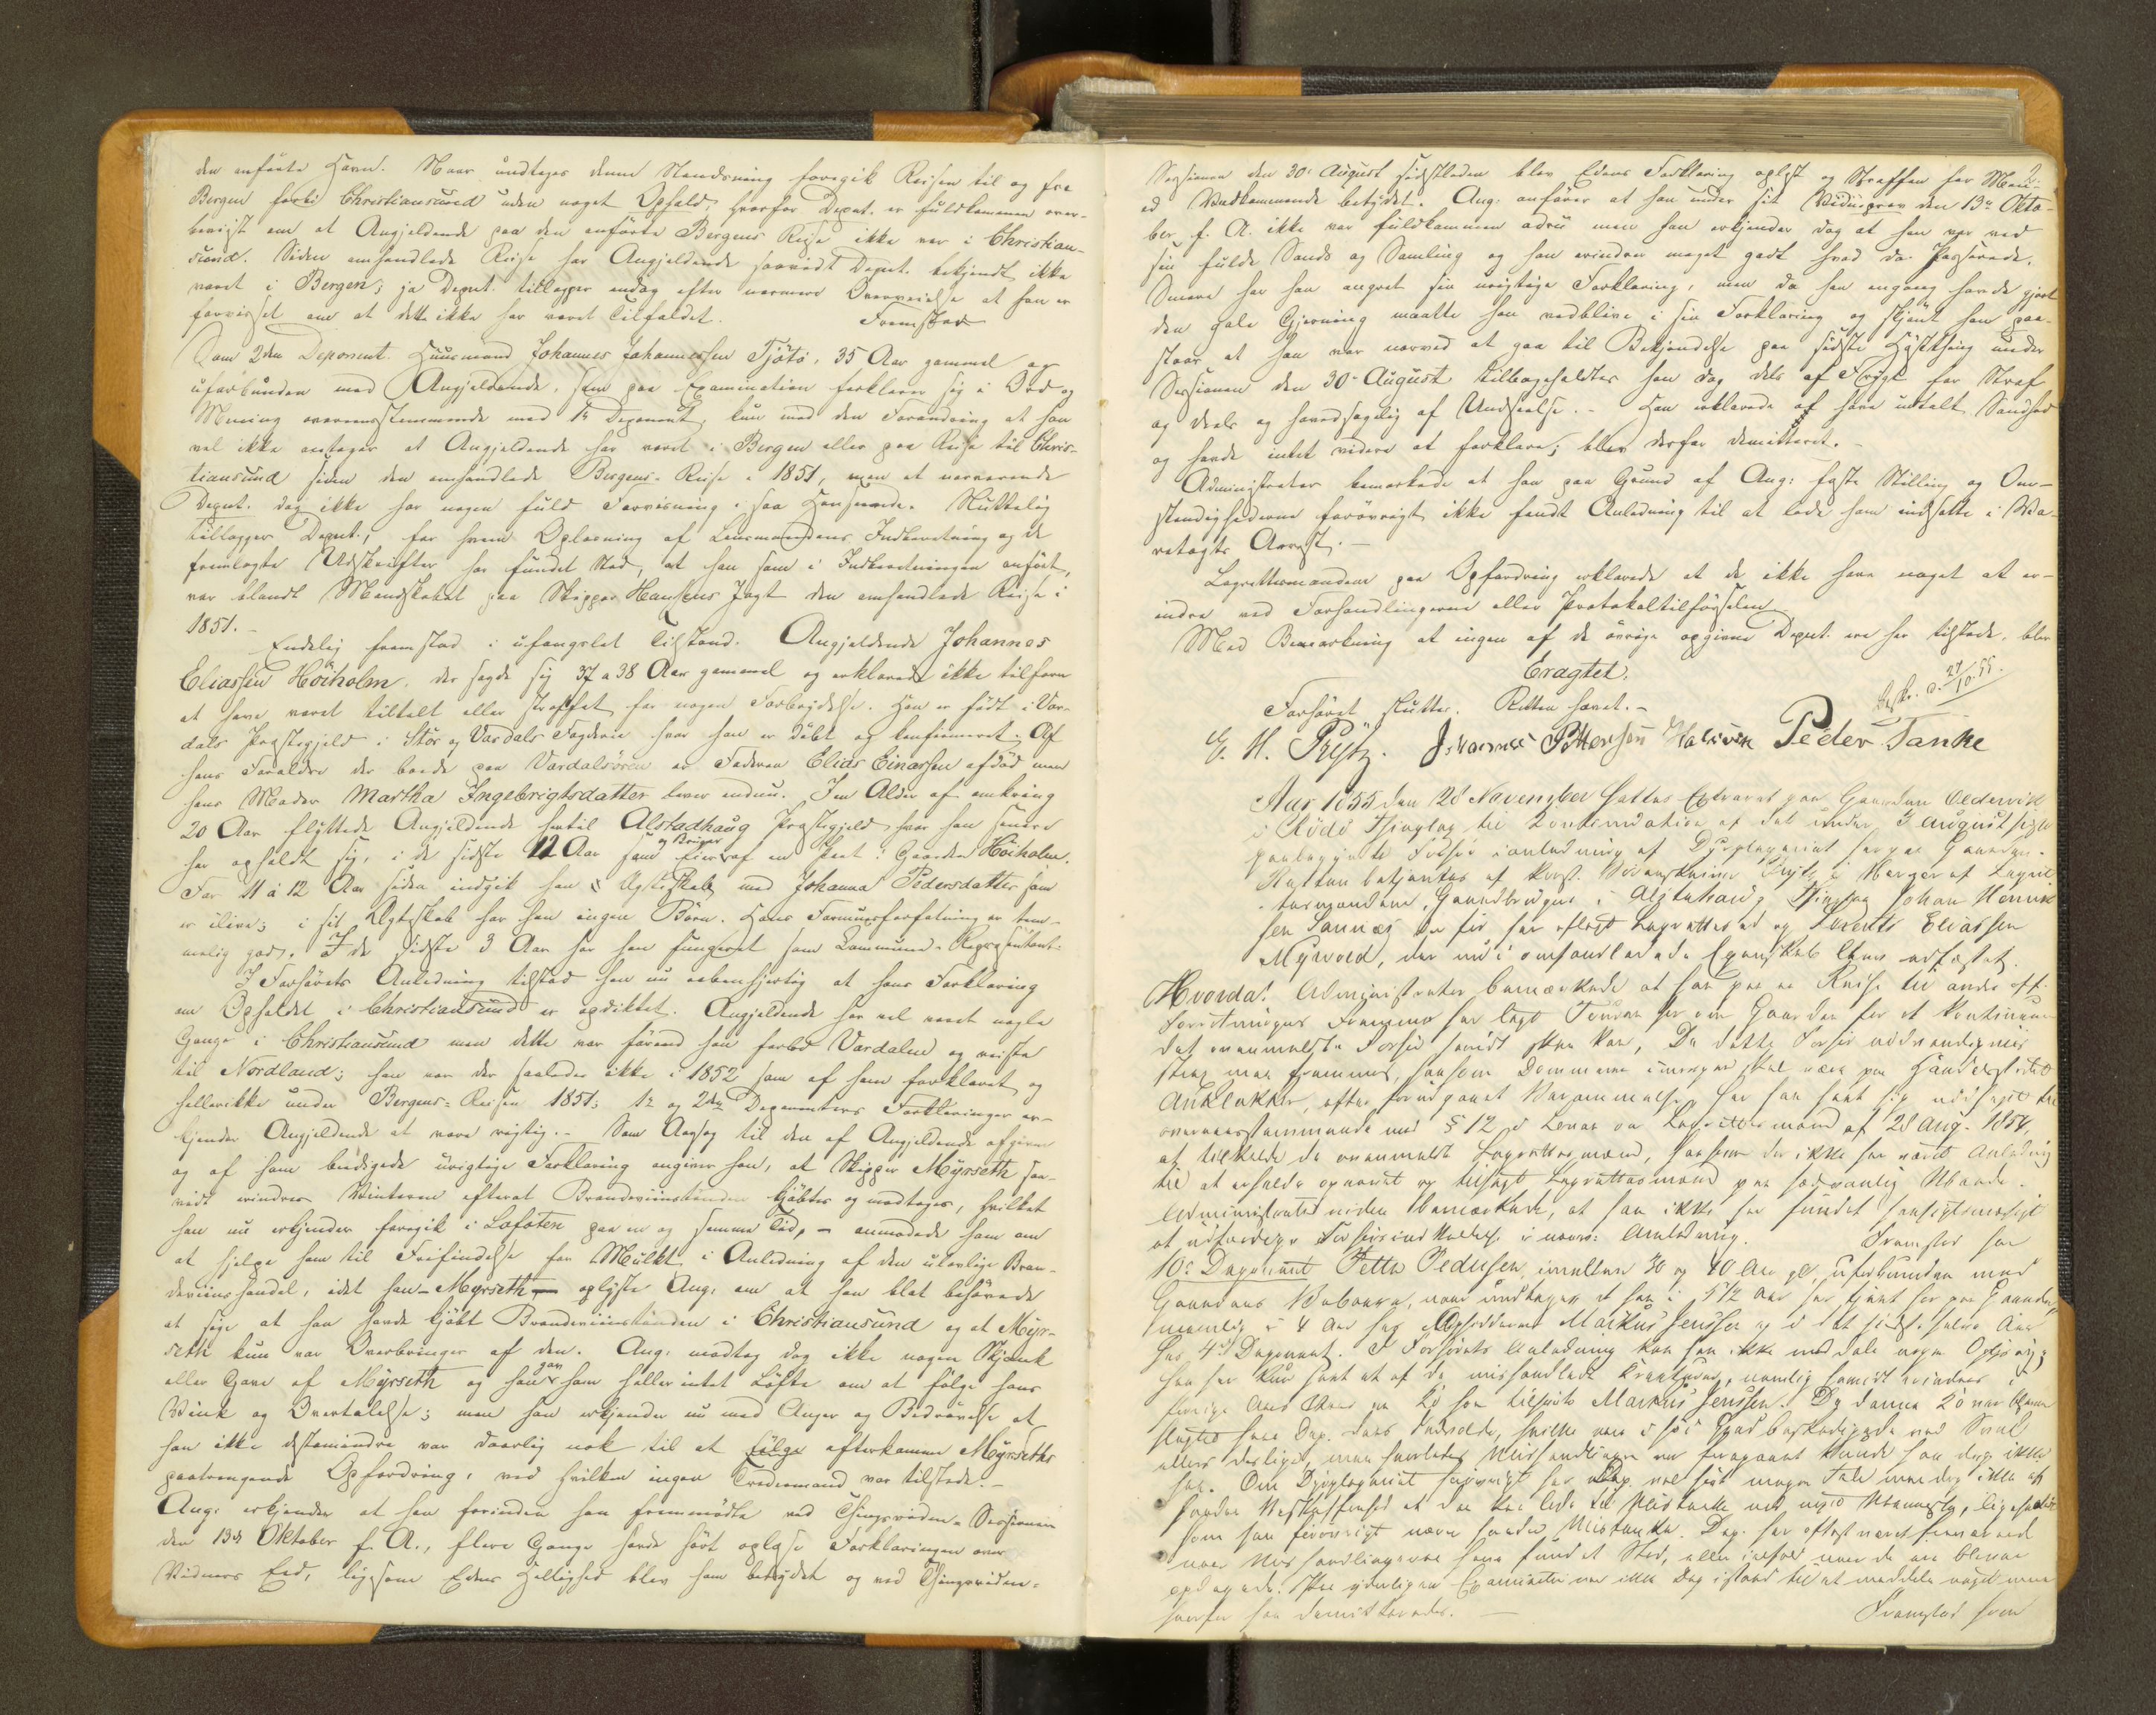 den anførte Havn. Naar undtages denne Standsning foregik Reisen til og fra
Bergen forbi Christiansund uden noget Ophold, hvorfor Depnt. er fuldkommen over-
beviist om at Angjeldende paa den anførte Bergens Reise ikke var i Christian-
sund. Siden omhandlede Reise har Angjeldende saavidt Depnt. bekjendt ikke
været i Bergen; ja Depnt. tillægger endog efter nærmere Overveielse at han er
forvisset om at dette ikke har været Tilfældet. Fremstod
Som 2den Deponent Huusmand Johannes Johannessen Tjötö, 35 Aar gammel og
uforbunden med Angjeldende, som paa Examination forklarer sig i Ord og
Mening overensstemmende med 1ste Deponent, kun med den Forandring at han
vel ikke antager at Angjeldende har været i Bergen eller paa Reise til Chris-
tiansund siden den omhandlede Bergens-Reise i 1851, men at nærværende
Depnt. dog ikke har nogen fuld Forvisning i saa Henseende. Sluttelig
tillægger Depnt., for hvem Oplæsning af Lensmandens Indberetning og de
fremlagte Udskrifter har fundet Sted, at han som i Indberetningen anført,
var blandt Mandskabet paa Skipper Hansens Jagt den omhandlede Reise i
1851.-
Endelig fremstod i ufængslet Tilstand. Angjeldende Johannes
Eliassen Höiholm, der sagde sig 37 a 38 Aar gammel og erklærede ikke tilforn
at have været tiltalt eller straffet for nogen Forbrydelse. Han er født i Vær-
dals Præstegjeld i Stör og Værdals Fogderie hvor han er døbt og konfirmeret. Af
hans Forældre der boede paa Værdalsören er Faderen Elias Einarsen afdød men
hans Moder Martha Ingebrigtsdatter lever endnu. I en Alder af omkring
20 Aar flyttede Angjeldende hertil Alstadhaug Præstegjeld, hvor han senere
har opholdt sig, i de sidste 12 Aar som Eier og Bruger af en Part i Gaarden Höiholm.
For 11 à 12 Aar siden indgik han i Ægteskab med Johanna Pedersdatter som
er ilive; i sit Ægteskab har han ingen Børn. Hans Formuesforfatning er tem-
melig god. I de sidste 3 Aar har han fungeret som Kommune-Repræsentant.
I Forhørets Anledning tilstod han nu aabenhjertig at hans Forklaring
om Opholdet i Christiansund er opdigtet. Angjeldende har vel været nogle
Gange i Christiansund men dette var førend han forlod Værdalen og reiste
til Nordland; han var der saaledes ikke i 1852 som af ham forklaret og
hellerikke under Bergens-Reisen 1851; 1ste og 2den Deponenters Forklaringer er-
kjender Angjeldende at være rigtig.- Som Aarsag til den af Angjeldende afgivne
og af ham beedigede urigtige Forklaring angiver han, at Skipper Myrseth saa-
vidt erindres Vinteren efterat Brændeviinstønden kjøbtes og modtoges, hvilket
han nu erkjender foregik i Lofoten paa en og samme Tid, - anmodede ham om
at hjelpe ham til Frifindelse for Mulkt i Anledning af den ulovlige Bræn-
deviinshandel, idet han - Myrseth - oplyste Ang. om at han blot behøvede
at sige at han havde kjøbt Brændeviinstønden i Christiansund og at Myr-
seth kun var Overbringer af den. Ang. modtog dog ikke nogen Skjænk
eller Gave af Myrseth og han gav ham heller intet Løfte om at følge hans
Vink og Overtalelse; men han erkjender nu med Anger og Bedrøvelse at
han ikke destomindre var daarlig nok til at følge efterkomme Myrseths
paatrængende Opfordring, ved hvilken ingen Tredjemand var tilstede.-
Ang. erkjender at han forinden han fremmødte ved Thingsvidne-Sessionen
den 13de Oktober f. A., flere Gange havde hørt oplæse Forklaringen over
Vidners Eed, ligesom Edens Hellighed blev ham betydet og ved Thingsvidne-
2.
Sessionen den 30te August sidstleden blev Edens Forklaring oplæst og Straffen for Meen-
ed Vedkommende betydet. Ang. anfører at han under sit Vidneprov den 13de Okto-
ber f. A. ikke var fuldkommen ædru men han erkjender dog at han var ved
sin fulde Sands og Samling og han erindrer meget godt hvad da passerede.
Senere har han angret sin urigtige Forklaring, men da han engang havde gjort
den gale Gjerning maatte han vedblive i sin Forklaring og skjønt han paa-
staar at han var nærved at gaa til Bekjendelse paa sidste Høstthing under
Sessionen den 30te August tilbageholdtes han dog dels af Frygt for Straf
og deels og hovedsagelig af Undseelse.- Han erklærede at have udtalt Sandhed
og havde intet videre at forklare; blev derfor demitteret.-
Administrator bemærkede at han paa Grund af Ang. faste Stilling og Om-
stændighederne forøvrigt ikke fandt Anledning til at lade ham indsætte i Va-
retægts Arrest.-
Lagrettesmændene paa Opfordring erklærede at de ikke have noget at er-
indre ved Forhandlingerne eller Protokoltilførselen
Med Bemærkning at ingen af de øvrige opgivne Depnt. ere her tilstede, blev
Eragtet.
Forhøret sluttes. Retten hævet.-
Besk. d. 29/10.55.
G. H. Prÿtz. Johannes Pettersen Halsvik Peder Tanke
Aar 1855 den 28 November sattes Extraret paa Gaarden Oldervik
i Rödö Thinglag til Kontinuation af det under 3 August sidstl.
paabegyndte Forhør i anledning af Dyrplageriet her paa Gaarden.
Retten betjentes af konst. Sorenskriver Prÿtz i Overvær af Lagret-
tesmændene, Gaardbruger i Alstahaug Thinglag Johan Henrik
sen Sannæs der før har aflagt Lagrettesed og Terents Eliassen
Myrvold, der nu i omhandlede Egenskab blev edfæstet.
Hvorda! Administrator bemærkede at han paa en Reise til andre off.
Forretningers Fremme har lagt Touren her om Gaarden for at kontinuere
det ommeldte Forhør saavidt skee kan, Da dette Forhør nødvendigviis
strax maa fremmes, saasom Dommeren imorgen skal være paa Handelsstedet
, efter forudgaaet Berammelse har han seet sig nødsaget til
overensstemmende med § 12 i Loven om Lagrettesmænd af 28 Aug. 1854,
at tilkalde de ommeldte Lagrettesmænd, saasom der ikke har været Anledning
til at erholde opnævnt og tilsagt Lagrettesmænd paa sædvanlig Maade.
Administrator videre bemærkede, at han ikke har fundet hensigtsmæssigt
at udfærdige Forhørsindkaldelse i nærv. Anledning. Fremstod som
10de Deponent Petter Pedersen, imellem 30 og 40 Aar gl, uforbunden med
Gaardens Beboere, naar undtages at han i 5½ Aar har tjent her paa Gaarden
nemlig i 4 Aar hos Opsidderen Markus Jenssen og i det sidste halve Aar
hos 4de Deponent. I Forhørets Anledning kan han ikke meddele nogen Oplysning;
han har kun seet et af de mishandlede Kreaturer, nemlig saavidt erindres i
forrige Aar en Ko som tilhørte Markus Jenssen. Da denne Ko var bleven
slagtet saae Dep. dens Indvolde, hvilke vare i høi Grad beskadigede ved Snit
eller desligt, men hvorledes Mishandlingen var foregaaet kunde han dog ikke
see. Om Dyrplageriet forøvrigt har Dep. vel hørt megen Tale men dog ikke af
saadan Beskaffenhed at den kan lede til Mistanke mod noget Menneske, ligesaalidt
som han forøvrigt nærer saadan Mistanke. Dep. har oftest været fraværende
naar Mishandlingerne have fundet Sted, eller ialfald naar de ere blevne
opdagede. Paa yderligere Examination var ikke Dep. istand til at meddele noget mere
hvorfor han demitteredes.- Fremstod som